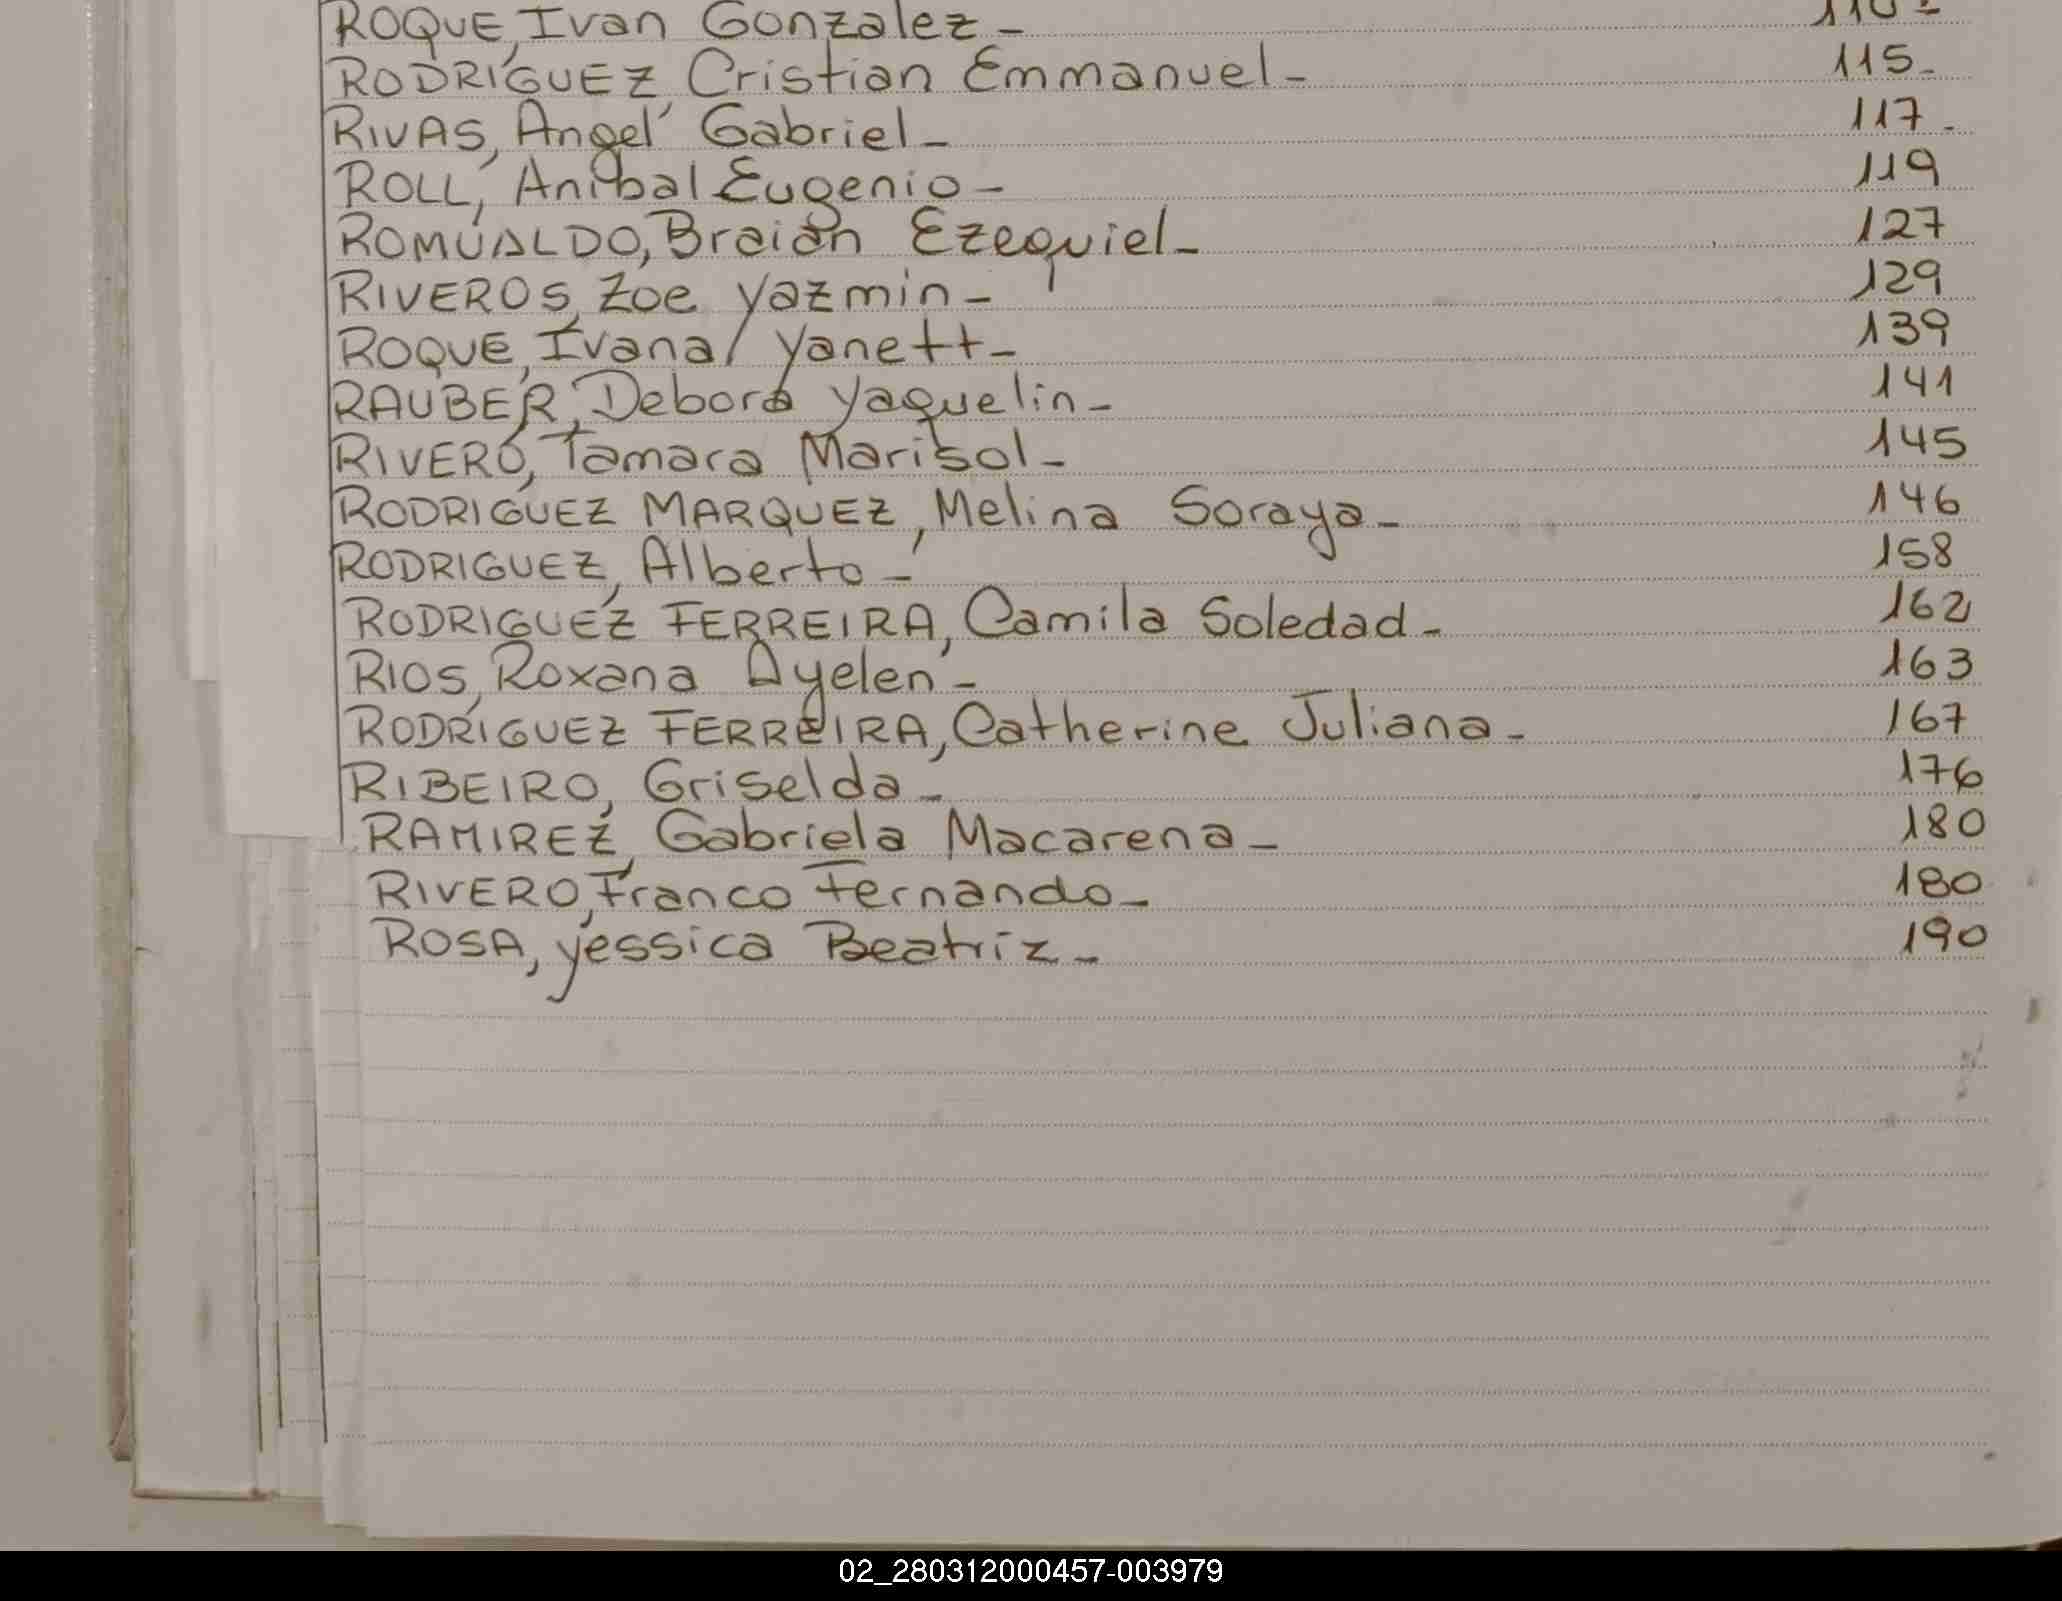 ROQUE, Ivan Gonzalez - 110 -
RODRIGUEZ, Cristian Emmanuel - 115 -
RIVAS, Angel Gabriel - 117 -
ROLL, Anibal Eugenio - 119
ROMUALDO, Braian Ezequiel - 127
RIVEROS, Zoe Yazmin - 129
ROQUE, Ivana Yanett - 139
RAUBER, Debora Yaquelin - 141
RIVERO, Tamara Marisol - 145
RODRIGUEZ MARQUEZ, Melina Soraya - 146
RODRIGUEZ, Alberto - 158
RODRIGUEZ FERREIRA, Camila Soledad - 162
RIOS, Roxana Ayelen - 163
RODRIGUEZ FERREIRA, Catherine Juliana - 167
RIBEIRO, Griselda - 176
RAMIREZ, Gabriela Macarena - 180
RIVERO, Franco Fernando - 180
ROSA, Yessica Beatriz - 190
02_280312000457-003979